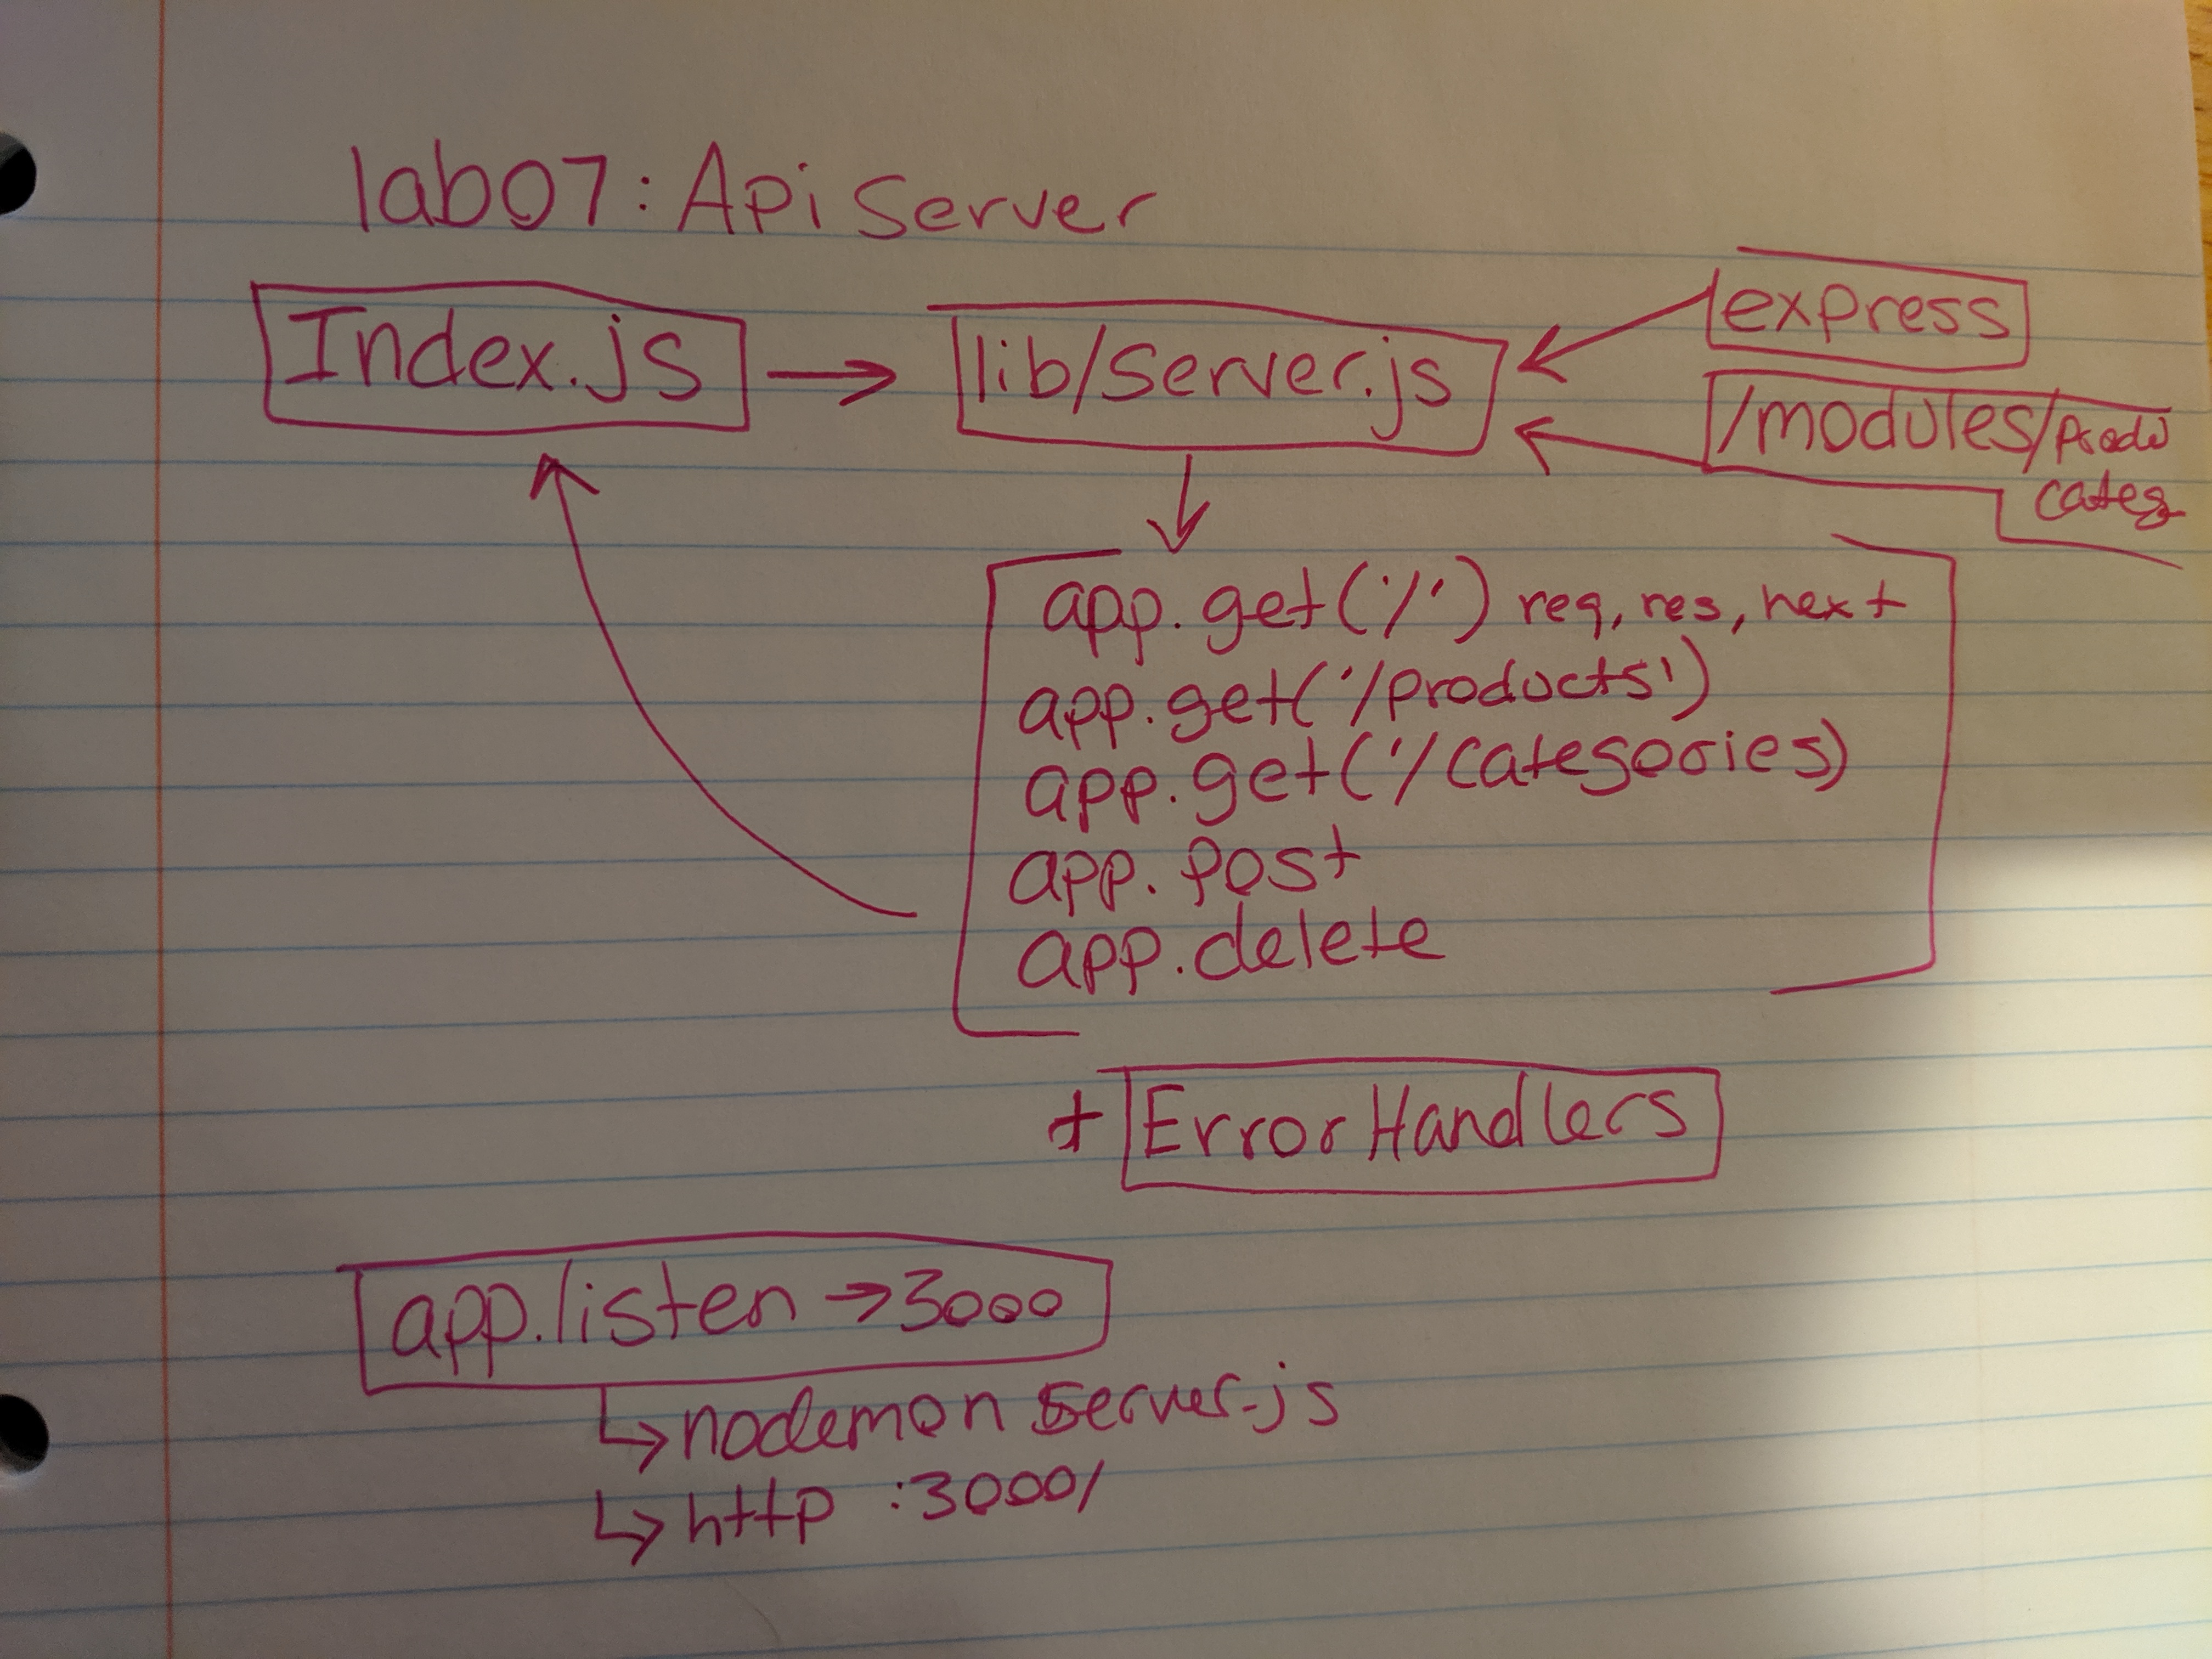 lab07: Api Server
express
Index.js → lib/server.js
/modules/
categ
app.get('/') req, res, next
app.get('/products')
app.get('/categories)
app.post
app.delete
+ Error Handlers
app.listen → 3000
↳ nodemon server.js
↳ http :3000/